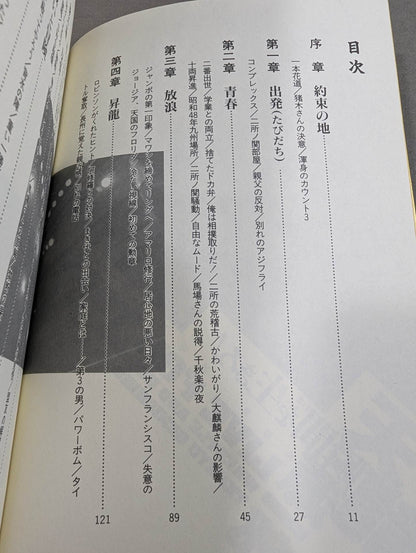 目次
序章 約束の地 11
一本花道／猪木さんの決意／渾身のカウント3
第一章 出発(たびだち) 27
コンプレックス／二所ノ関部屋／親父の反対／別れのアジフライ
第二章 青春 45
二番出世／学業との両立／捨てたドカ弁／俺は相撲取りだ!／二所の荒稽古／かわいがり／大麒麟さんの影響／
十両昇進／昭和48年九州場所／二所ノ関騒動／自由なムード／馬場さんの説得／千秋楽の夜
第三章 放浪 89
ジャンボの第一印象／マワシを締めてリングへ／アマリロ修行／居心地の悪い日々／サンフランシスコ／失意の
ジョージア、天国のフロリダ／初めての勲章
第四章 昇龍 121
ロビンソンがくれたヒント／第3の男／パワーボム／タイ
トル奪取